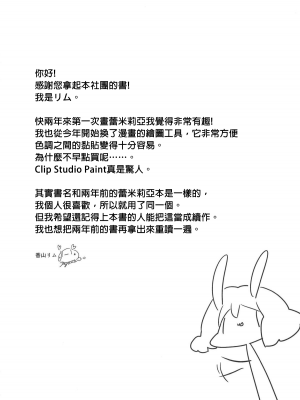 你好!
感謝您拿起本社團的書!
我是リム。
快兩年來第一次畫蕾米莉亞我覺得非常有趣!
我也從今年開始換了漫畫的繪圖工具，它非常方便
色調之間的黏貼變得十分容易。
為什麼不早點買呢……。
Clip Studio Paint真是驚人。
其實書名和兩年前的蕾米莉亞本是一樣的，
我個人很喜歡，所以就用了同一個。
但我希望還記得上本書的人能把這當成續作。
我也想把兩年前的書再拿出來重讀一遍。
香山リム